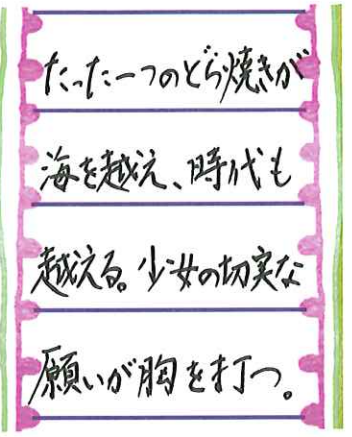 たった一つのどら焼きが
海を越え、時代も
越える。少女の切実な
願いが胸を打つ。